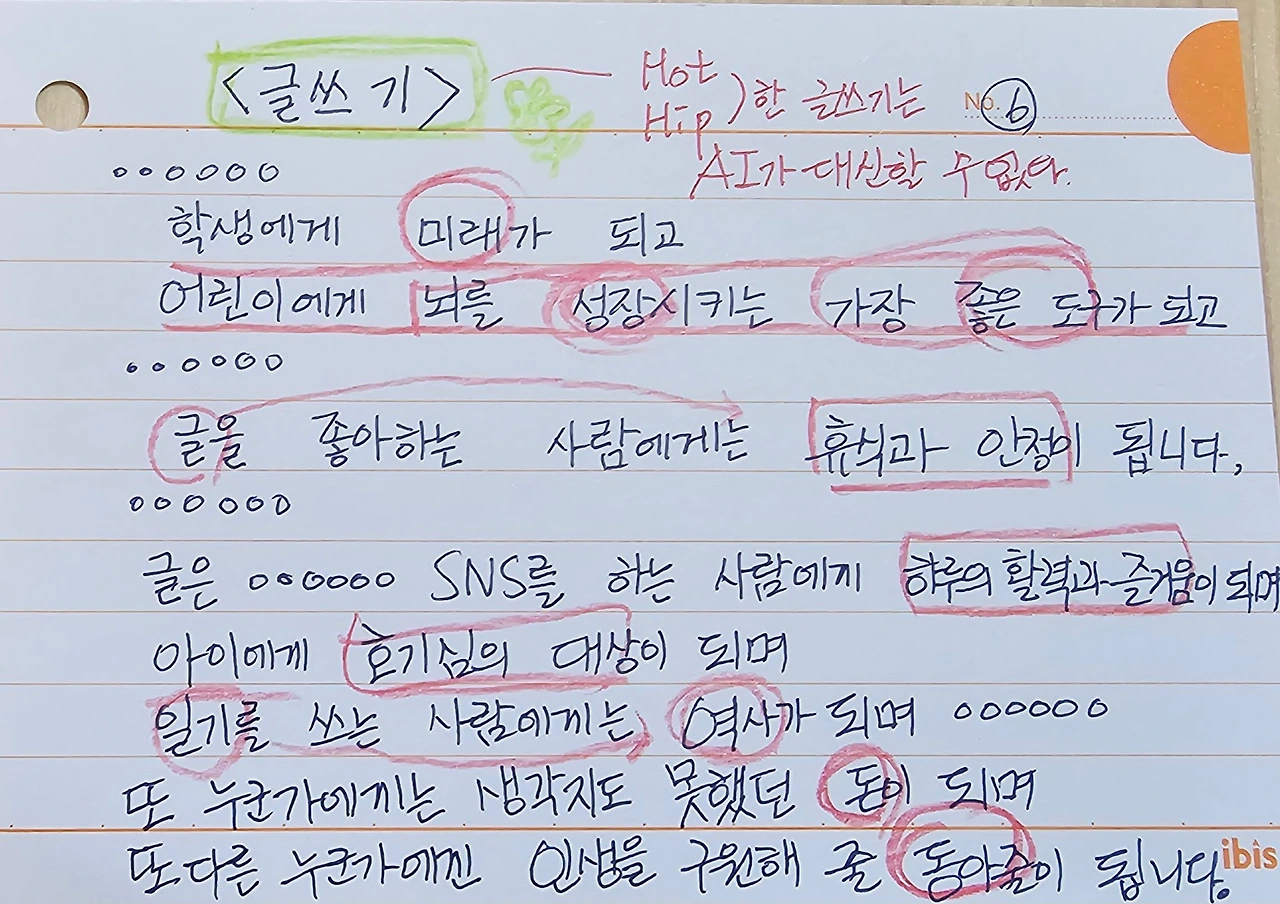 <글쓰기>
Hot
Hip )한 글쓰기는
AI가 대신할 수 없다.
No. 6
oooooo
학생에게 미래가 되고
어린이에게 뇌를 성장시키는 가장 좋은 도구가 되고
oooooo
글을 좋아하는 사람에게는 휴식과 안정이 됩니다,
oooooo
글은 oooooo SNS를 하는 사람에게 하루의 활력과 즐거움이 되며
아이에게 호기심의 대상이 되며
일기를 쓰는 사람에게는 역사가 되며 oooooo
또 누군가에게는 생각지도 못했던 돈이 되며
또다른 누군가에겐 인생을 구원해 줄 동아줄이 됩니다.
ibis